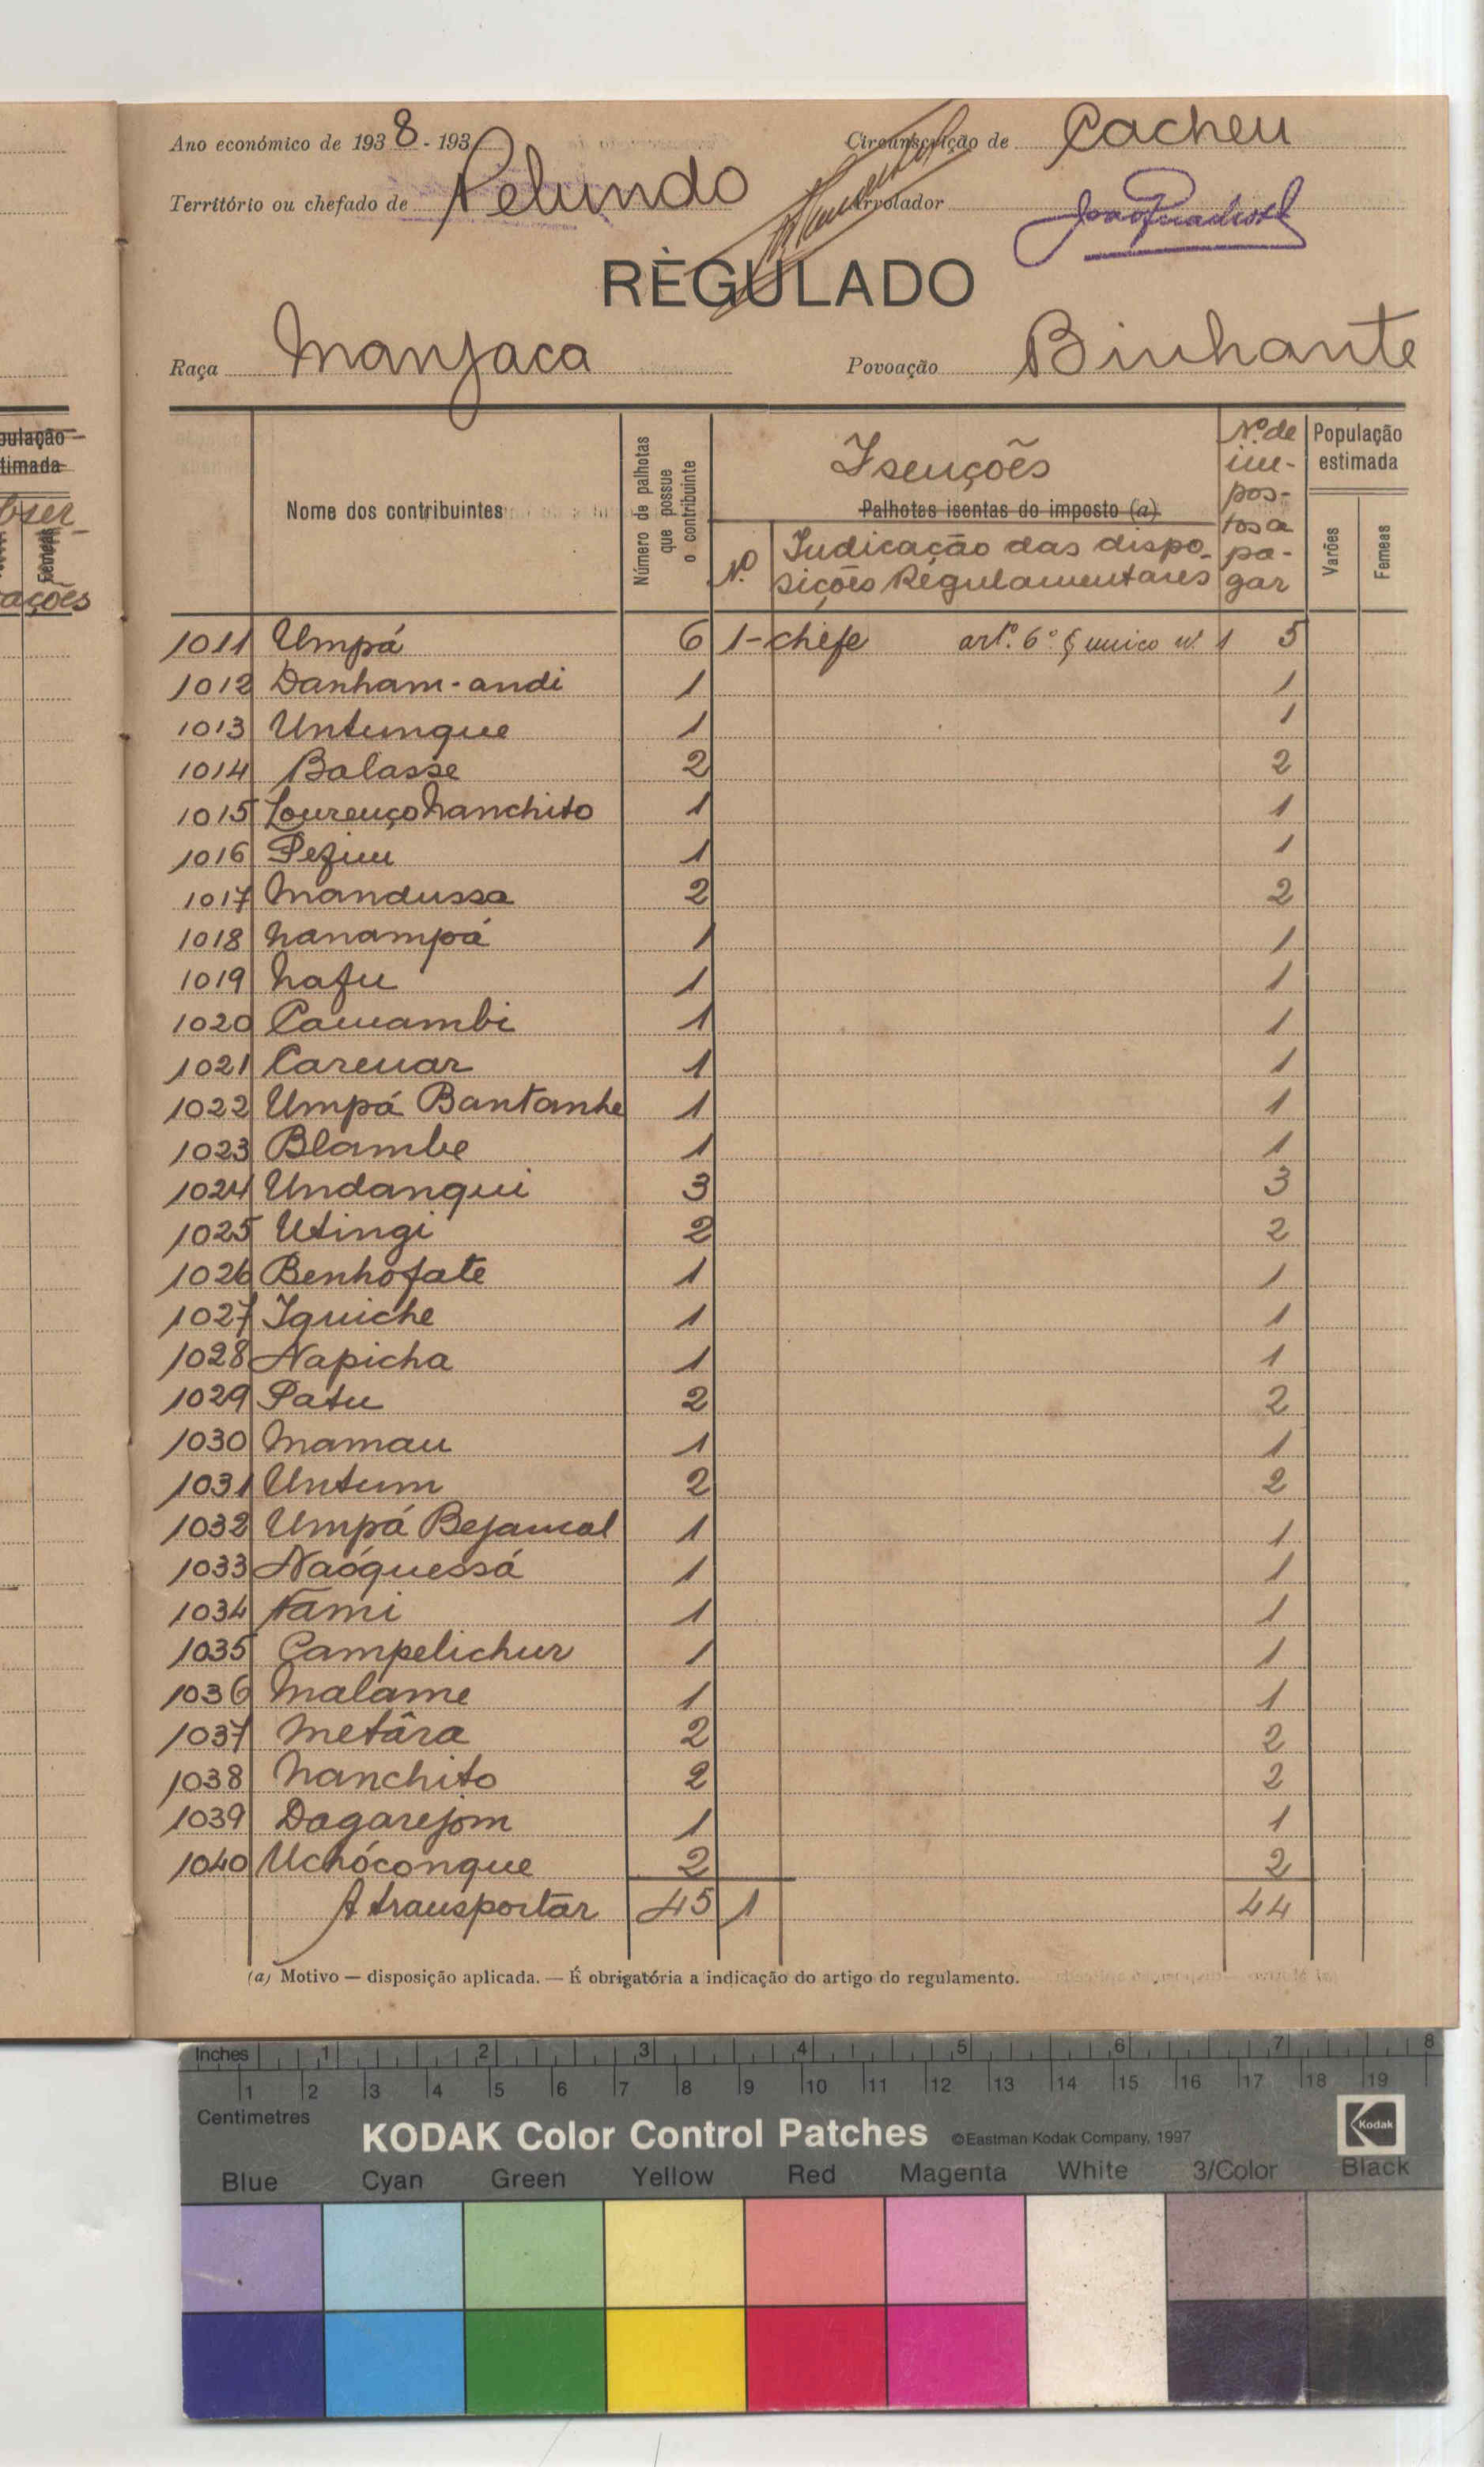 Ano económico de 1938-193
Circunscrição de Cacheu
Território ou chefado de Pelundo
Arrolador
RÈGULADO
Raça Manjaca
Povoação Binhante
Nome dos contribuintes
Número de palhotas que possue o contribuinte
Isenções
Palhotas isentas do imposto (a)
Nº
Indicação das disposições Regulamentares
Nº de impostos a pagar
População estimada
Varões
Femeas
1011 Umpá 6 1-chefe artº. 6º § unico nº 1 5
1012 Danham-andi 1 1
1013 Untunque 1 1
1014 Balasse 2 2
1015 Lourenço Nanchito 1 1
1016 Pefim 1 1
1017 Mandussa 2 2
1018 Nanampá 1 1
1019 Nafu 1 1
1020 Camambi 1 1
1021 Carenar 1 1
1022 Umpá Bantanhe 1 1
1023 Blambe 1 1
1024 Undanqui 3 3
1025 Utingi 2 2
1026 Benhofate 1 1
1027 Iquiche 1 1
1028 Napicha 1 1
1029 Patu 2 2
1030 Mamau 1 1
1031 Untum 2 2
1032 Umpá Bejamal 1 1
1033 Naóquessá 1 1
1034 Fami 1 1
1035 Campelichur 1 1
1036 Malame 1 1
1037 Metâra 2 2
1038 Nanchito 2 2
1039 Dagarejom 1 1
1040 Uchóconque 2 2
A transportar 45 1 44
(a) Motivo — disposição aplicada. — É obrigatória a indicação do artigo do regulamento.
Inches 1 2 3 4 5 6 7 8
1 2 3 4 5 6 7 8 9 10 11 12 13 14 15 16 17 18 19
Centimetres
KODAK Color Control Patches ©Eastman Kodak Company, 1997 Kodak
Blue Cyan Green Yellow Red Magenta White 3/Color Black